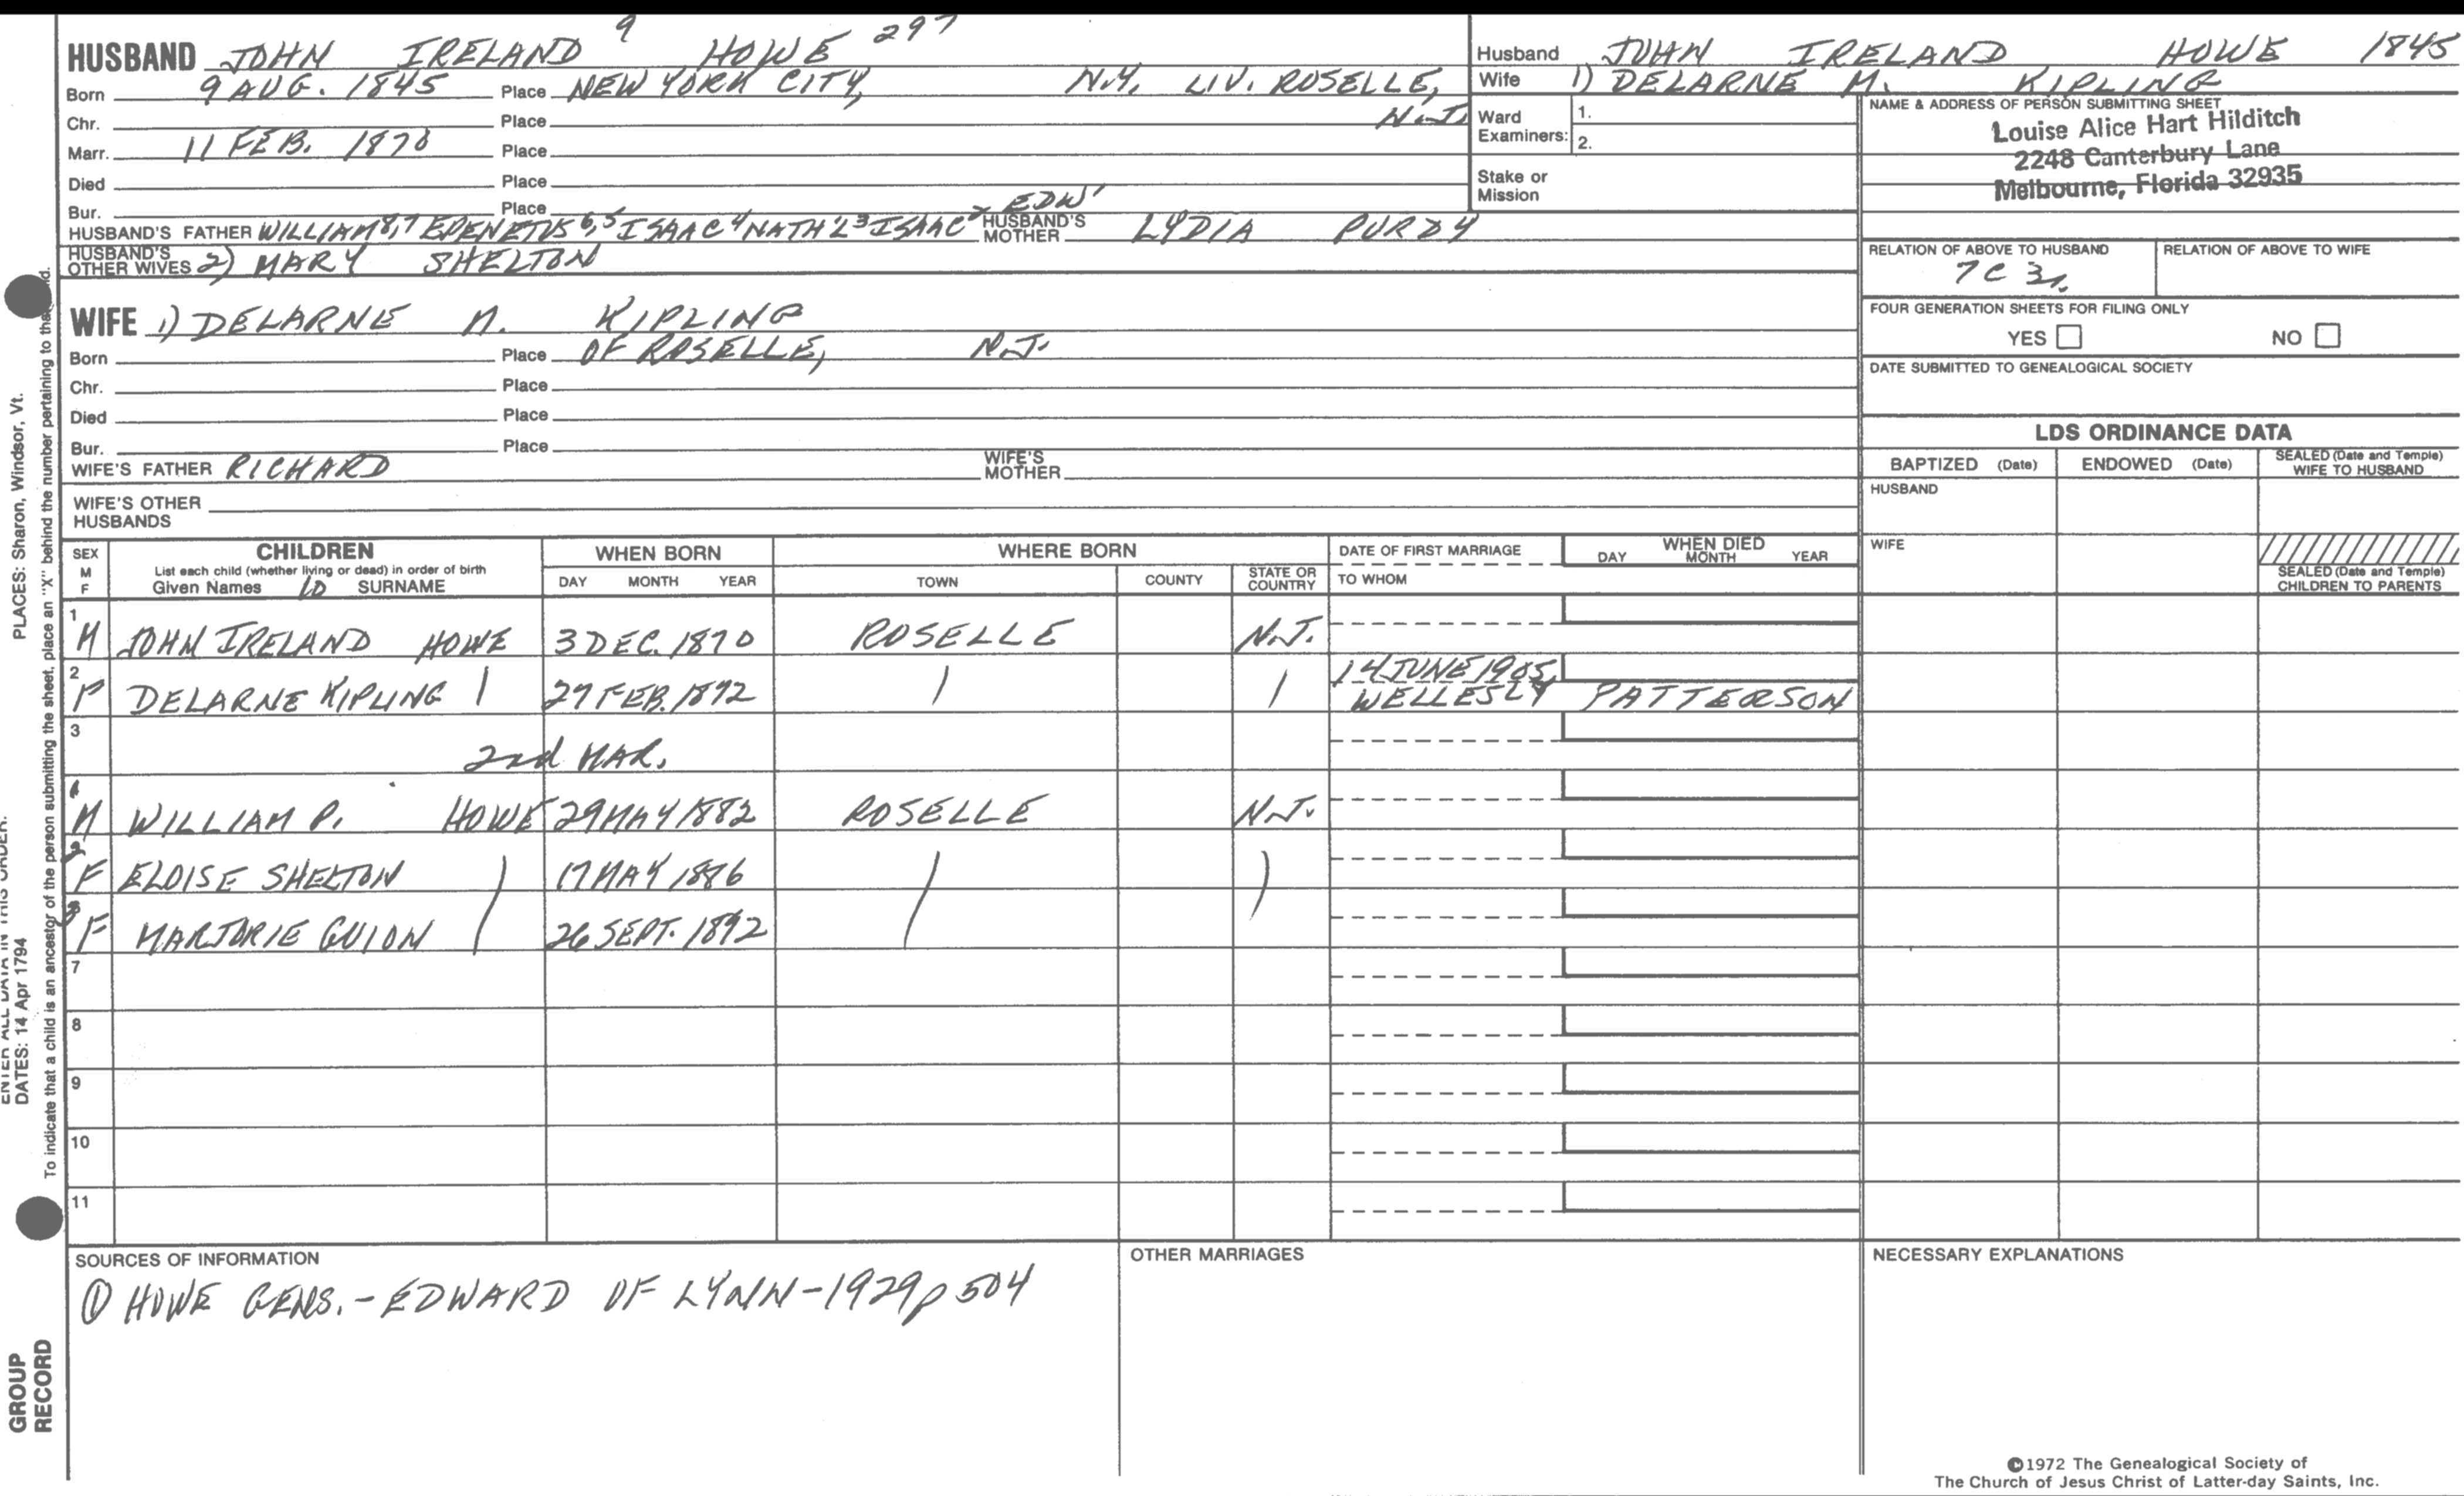 HUSBAND JOHN IRELAND 9 HOWE 297
Born 9 AUG. 1845 Place NEW YORK CITY, N.Y. LIV. ROSELLE,
Chr. Place N.J.
Marr. 11 FEB. 1870 Place
Died Place
Bur. Place EDW'
HUSBAND'S FATHER WILLIAM 8,7 EPENETUS 6,5 ISAAC 4 NATH'L 3 ISAAC 2 HUSBAND'S MOTHER LYDIA PURDY
HUSBAND'S OTHER WIVES 2) MARY SHELTON
WIFE 1) DELARNE M. KIPLING
Born Place OF ROSELLE, N.J.
Chr. Place
Died Place
Bur. Place
WIFE'S FATHER RICHARD WIFE'S MOTHER
WIFE'S OTHER HUSBANDS
Husband JOHN IRELAND HOWE 1845
Wife 1) DELARNE M. KIPLING
Ward Examiners: 1.
2.
Stake or Mission
NAME & ADDRESS OF PERSON SUBMITTING SHEET
Louise Alice Hart Hilditch
2248 Canterbury Lane
Melbourne, Florida 32935
RELATION OF ABOVE TO HUSBAND RELATION OF ABOVE TO WIFE
7C 3r.
FOUR GENERATION SHEETS FOR FILING ONLY
YES NO
DATE SUBMITTED TO GENEALOGICAL SOCIETY
LDS ORDINANCE DATA
BAPTIZED (Date) ENDOWED (Date) SEALED (Date and Temple) WIFE TO HUSBAND
HUSBAND
WIFE
SEALED (Date and Temple) CHILDREN TO PARENTS
SEX M F CHILDREN WHEN BORN WHERE BORN DATE OF FIRST MARRIAGE WHEN DIED
List each child (whether living or dead) in order of birth
Given Names SURNAME DAY MONTH YEAR TOWN COUNTY STATE OR COUNTRY TO WHOM DAY MONTH YEAR
1 M JOHN IRELAND HOWE 3 DEC. 1870 ROSELLE N.J.
2 DELARNE KIPLING 27 FEB. 1872 14 JUNE 1905
WELLESLY PATTERSON
3 2nd MAR.
1 M WILLIAM P. HOWE 29 MAY 1882 ROSELLE N.J.
2 F ELOISE SHELTON 17 MAY 1886
3 F MARJORIE GUION 26 SEPT. 1892
7
8
9
10
11
SOURCES OF INFORMATION OTHER MARRIAGES NECESSARY EXPLANATIONS
① HOWE GENS. - EDWARD OF LYNN - 1929 p 504
©1972 The Genealogical Society of
The Church of Jesus Christ of Latter-day Saints, Inc.
PLACES: Sharon, Windsor, Vt.
DATES: 14 Apr 1794
To indicate that a child is an ancestor of the person submitting the sheet, place an "X" behind the number pertaining to
GROUP
RECORD